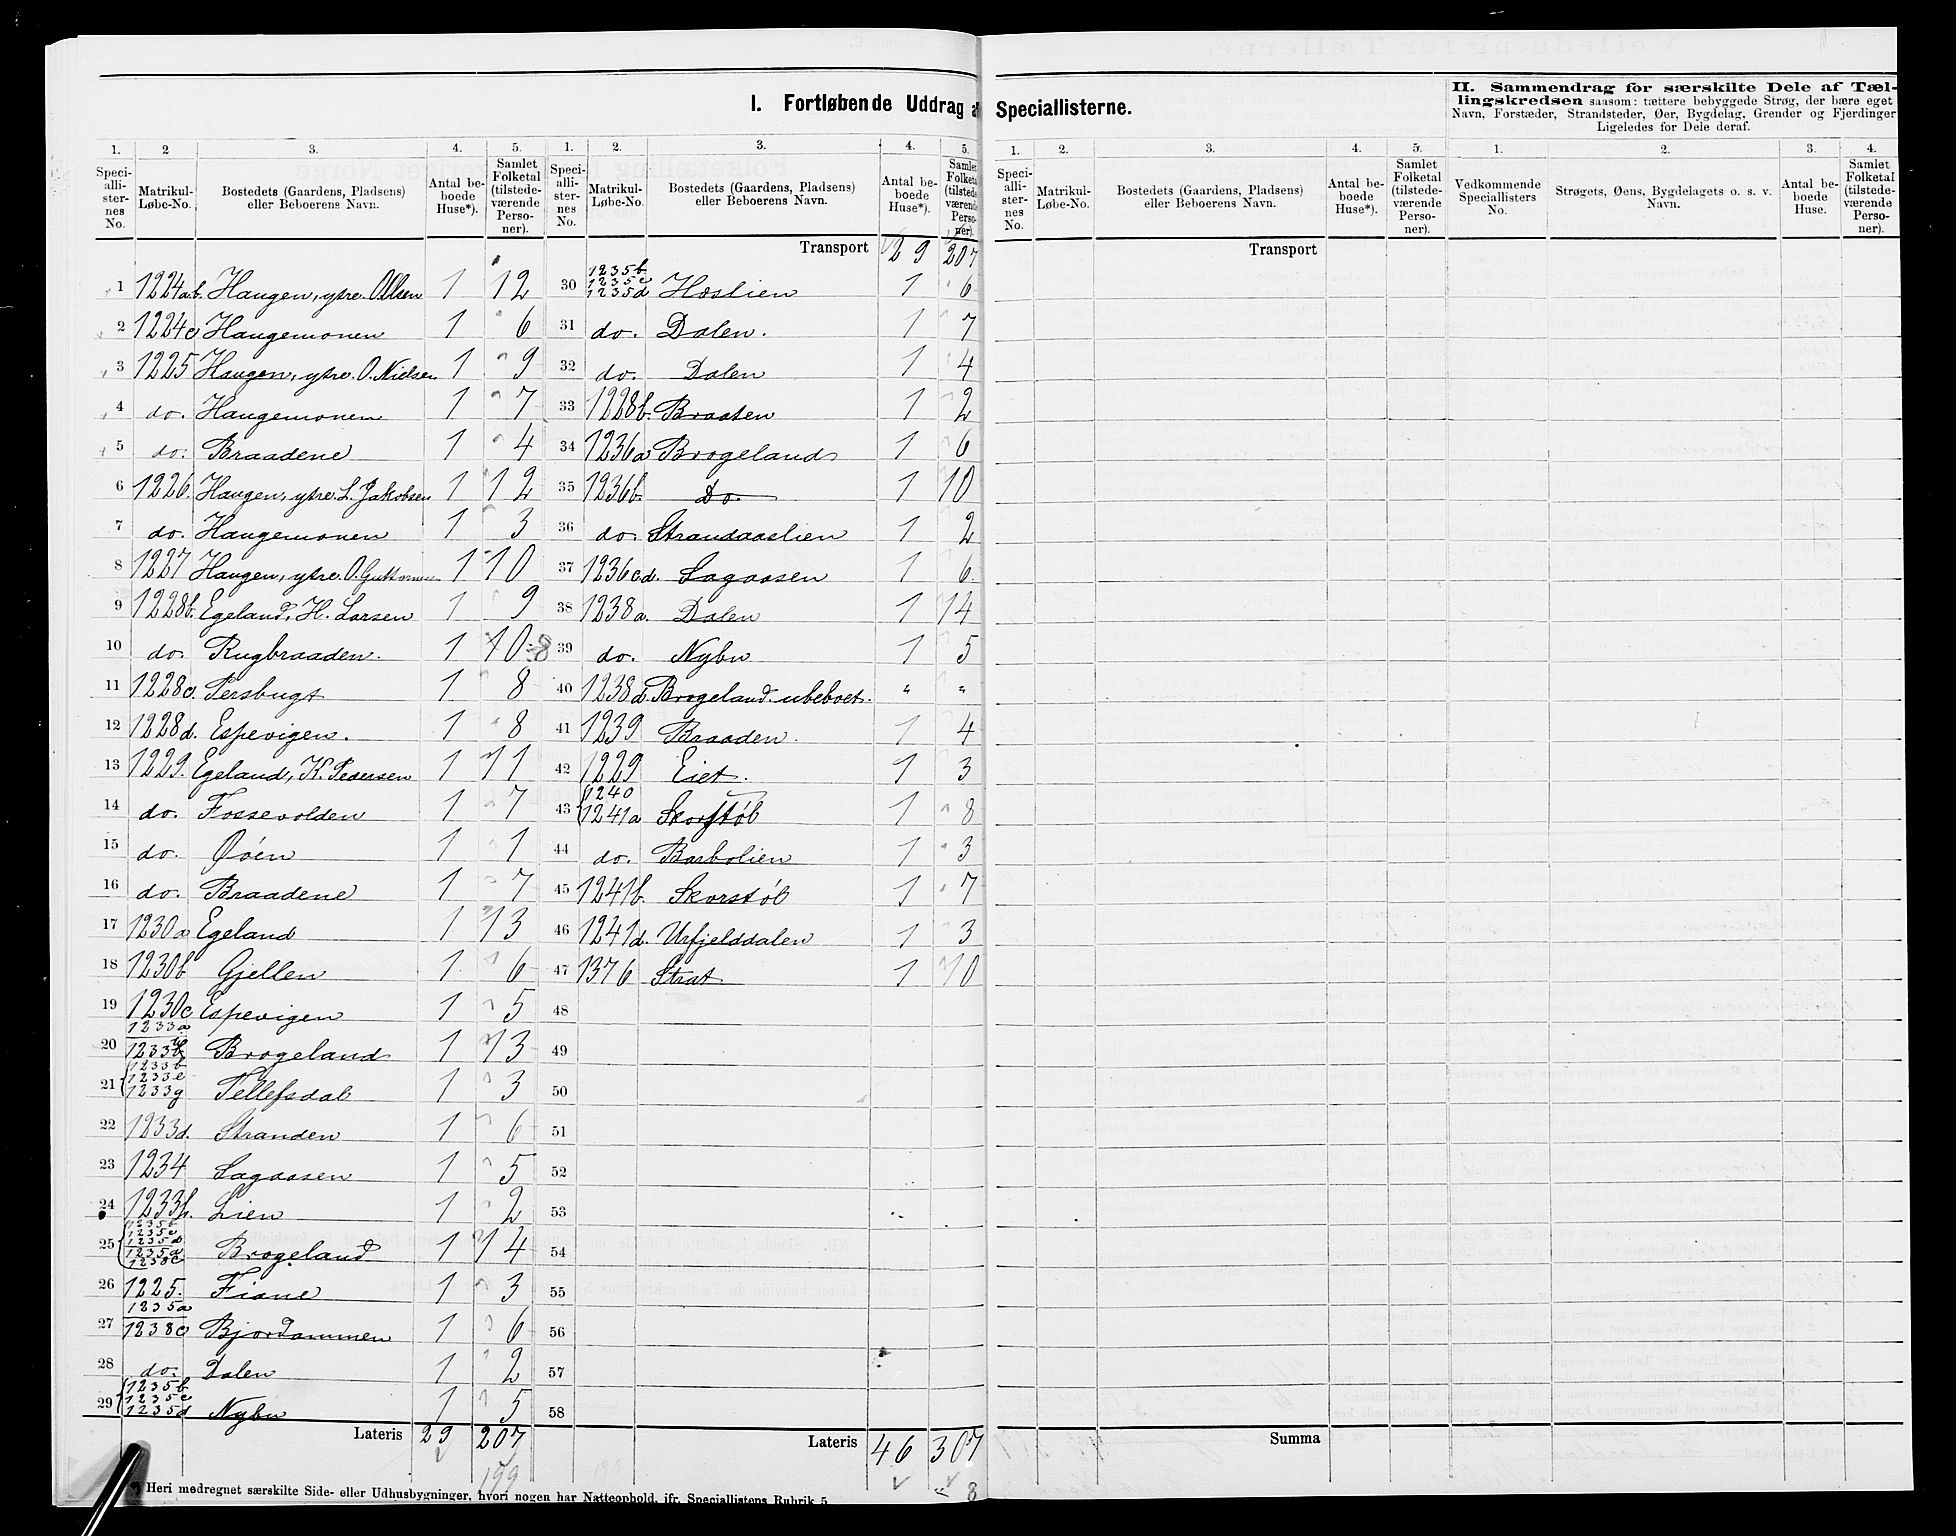 I. Fortløbende Uddrag a
Speciallisterne.
II. Sammendrag for særskilte Dele af Tæl-
lingskredsen saasom: tættere bebyggede Strøg, der bære eget
Navn, Forstæder, Strandsteder, Øer, Bygdelag, Grender og Fjerdinger
Ligeledes for Dele deraf.
1. 2 3. 4. 5. 1. 2. 3. 4. 5.
Speci-alli-ster-nes No. Matrikul-Løbe-No. Bostedets (Gaardens, Pladsens) eller Beboerens Navn. Antal be-boede Huse*). Samlet Folketal (tilstede-værende Perso-ner). Speci-alli-ster-nes No. Matrikul-Løbe-No. Bostedets (Gaardens, Pladsens) eller Beboerens Navn. Antal be-boede Huse*). Samlet Folketal (tilstede-værende Perso-ner).
Transport 29 207
1 1224a.b. Haugen, ytre. O. Olsen 1 12
2 1224c Haugemonen 1 6
3 1225 Haugen, ytre. O. Nielsen 1 9
4 do. Haugemonen 1 7
5 do. Braadene 1 4
6 1226. Haugen, ytre. L. Jakobsen 1 12
7 do. Haugemonen 1 3
8 1227 Haugen, ytre. 1 10
9 1228b. Egeland, H. Larsen 1 9
10 do. Rugbraaden. 1 10 8
11 1228c. Persbugt 1 8
12 1228d. Espevigen. 1 8
13 1229. Egeland, K. Pedersen 1 11
14 do. Fossevolden 1 7
15 do. Øöen 1 1
16 do. Braadene 1 7
17 1230a Egeland 1 13
18 1230b Gjellen 1 6
19 1230c Espevigen 1 5
20 1233a 1233b Brogeland 1 13
21 1233b 1233e 1233g Tellefsdal 1 3
22 1233d. Stranden 1 6
23 1234 Sagaasen 1 5
24 1233h. Lien 1 2
25 1235b 1235c 1235d 1235d 1238c Brogeland 1 14
26 1225. Fiane 1 3
27 1235a 1238c Bjordammen 1 6
28 do. Dalen 1 2
29 1235b 1235c 1235d Nybu 1 5
Lateris 29 207
199
30 1235b 1235c 1235d Hæslien 1 6
31 do. Dalen. 1 7
32 do. Dalen 1 4
33 1228b. Braaten 1 2
34 1236a Brogeland 1 6
35 1236b. Do. 1 10
36 do. Strandaaslien 1 2
37 1236c.d. Sagaasen 1 6
38 1238a. Dalen 1 14
39 do. Nybu 1 5
40 1238d. Brogeland. ubeboet. " "
41 1239 Braaden. 1 4
42 1229 Eiet. 1 3
43 1240 1241a Skorstøl 1 8
44 do. Barbolien 1 3
45 1241b. Skorstøl 1 7
46 1241d. Urfjelddalen 1 3
47 1376 Strat 1 10
48
49
50
51
52
53
54
55
56
57
58
Lateris 46 307
8
*) Heri medregnet særskilte Side- eller Udhusbygninger, hvori nogen har Natteophold, jfr. Speciallistens Rubrik 5.
1. 2. 3. 4. 5. 1. 2. 3. 4.
Speci-alli-ster-nes No. Matrikul-Løbe-No. Bostedets (Gaardens, Pladsens) eller Beboerens Navn. Antal be-boede Huse*). Samlet Folketal (tilstede-værende Perso-ner). Vedkommende Speciallisters No. Strøgets, Øens, Bygdelagets o. s. v. Navn. Antal be-boede Huse. Samlet Folketal (tilstede-værende Perso-ner).
Transport
Summa